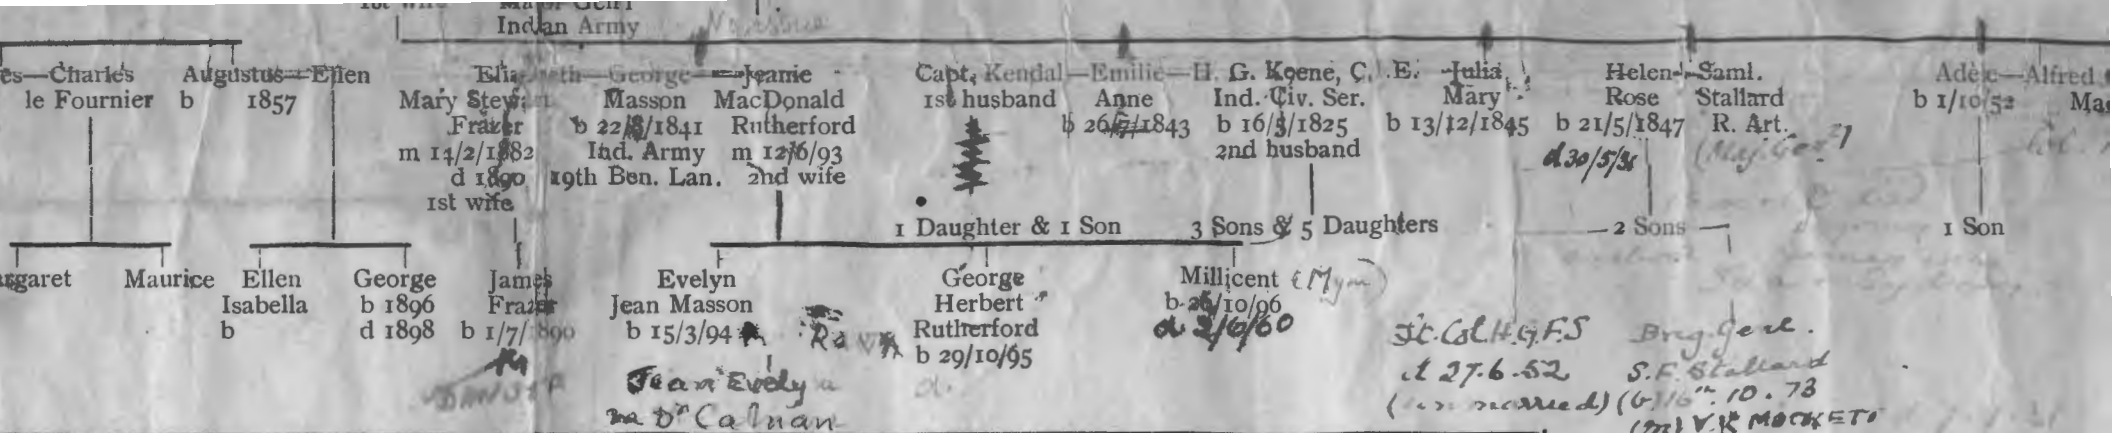 Indian Army
Charles
le Fournier
Augustus=Ellen
b 1857
Elizabeth—George=Jeanie
Mary Stewart
Frazer
m 14/2/1882
d 1890
1st wife
Masson
b 22/8/1841
Ind. Army
19th Ben. Lan.
MacDonald
Rutherford
m 12/6/93
2nd wife
Capt. Kendal—Emilie—H. G. Keene, C.I.E.
1st husband
Anne
b 26/7/1843
Ind. Civ. Ser.
b 16/3/1825
2nd husband
Julia
Mary
b 13/12/1845
Helen—Saml.
Rose
b 21/5/1847
d 30/5/31
Stallard
R. Art.
(Maj. Gen.)
Adèle—Alfred
b 1/10/52
1 Daughter & 1 Son
3 Sons & 5 Daughters
2 Sons
1 Son
Maurice
Ellen
Isabella
b
George
b 1896
d 1898
James
Frazer
b 1/7/1890
Evelyn
Jean Masson
b 15/3/94
Jean Evelyn
m Dr Calnan
George
Herbert
Rutherford
b 29/10/95
d.
Millicent (Mym)
b 26/10/96
d 2/6/60
Lt. Col. H.G.F.S
d 27.6.52
(unmarried)
Brig. Genl.
S.F. Stallard
10.73
(m)